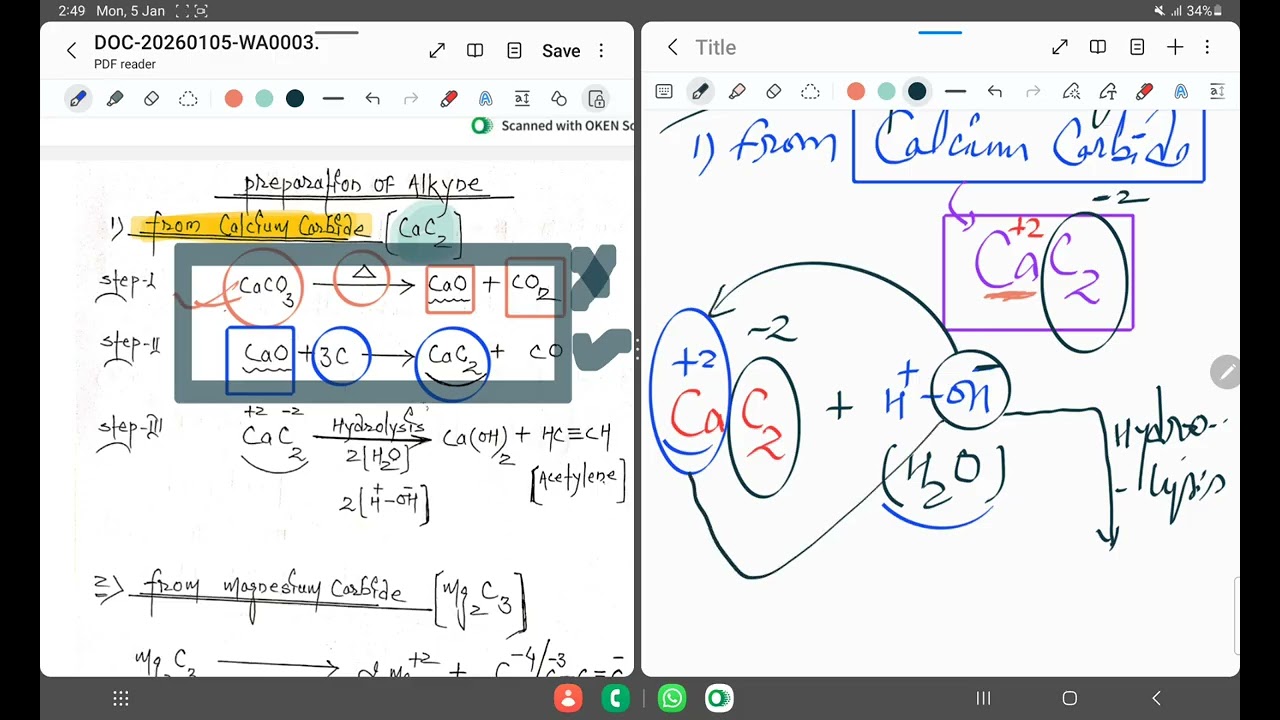 2:49 Mon, 5 Jan
34%
DOC-20260105-WA0003.
PDF reader
Save
Scanned with OKEN Sc
preparation of Alkyne
1) from Calcium Carbide [CaC2]
step-I CaCO3 —Δ→ CaO + CO2
step-II CaO + 3C → CaC2 + CO
+2 -2
step-III CaC2 Hydrolysis → Ca(OH)2 + HC≡CH
2[H2O]
[Acetylene]
2[H+-OH-]
2) from magnesium Carbide [Mg2C3]
Mg2C3 →
Title
1) from Calcium Carbide
-2
+2
CaC2
+2 -2
CaC2 + H+-OH-
(H2O)
Hydro-
-lysis